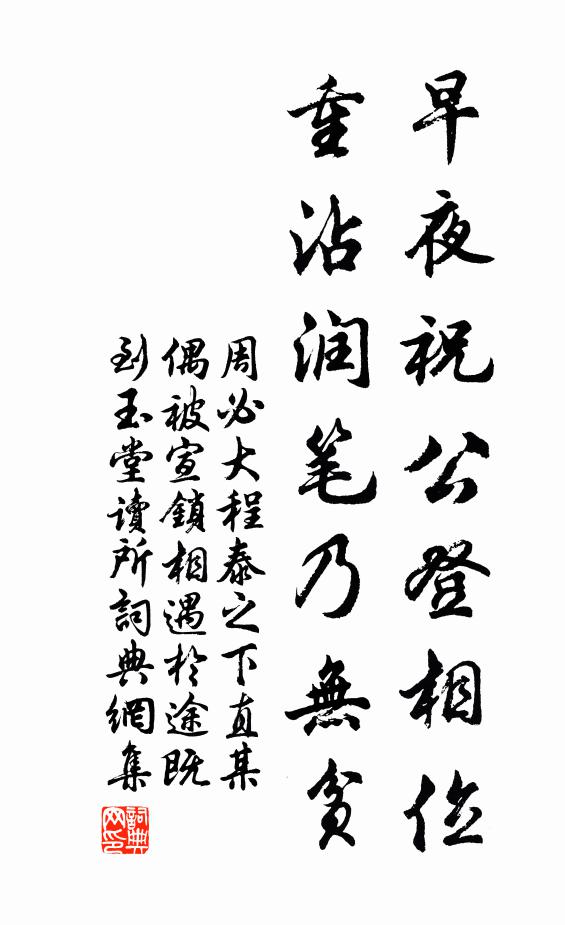 早夜祝公登相位
重沾润笔乃無贫
周必大程泰之下直某
偶被宣鎖相遇於途既
到玉堂讀所詞典網集
詞典网印